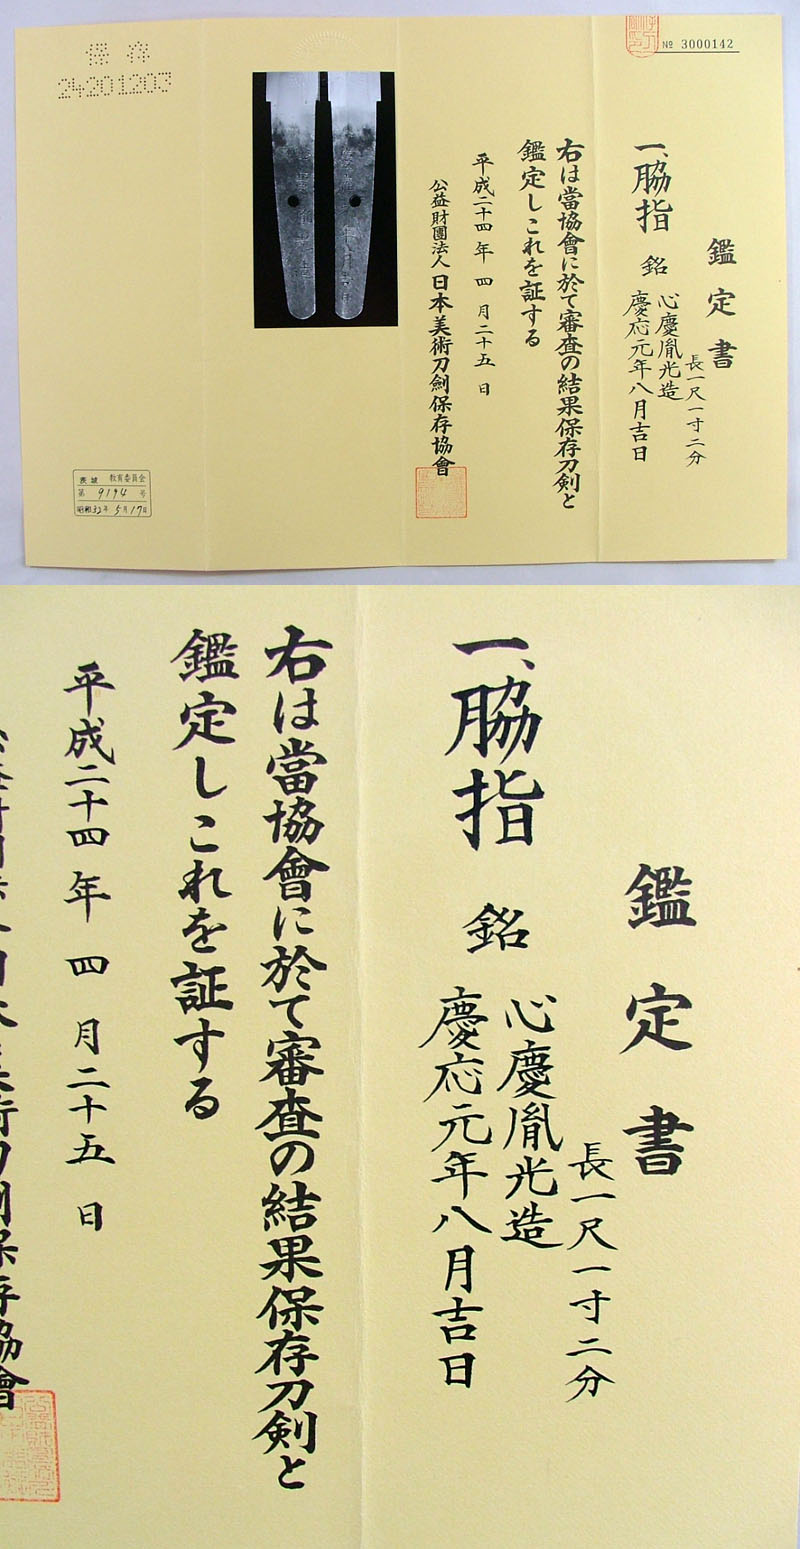 № 3000142
鑑定書
長一尺一寸二分
一、脇指 銘 心慶胤光造
慶応元年八月吉日
右は當協會に於て審査の結果保存刀剣と
鑑定しこれを証する
平成二十四年 四 月二十五 日
公益財團法人日本美術刀劍保存協會
保存
24201203
茨城 教育委員会
第 9194 号
昭和32年5月17日
鑑定書
長一尺一寸二分
一、脇指 銘 心慶胤光造
慶応元年八月吉日
右は當協會に於て審査の結果保存刀剣と
鑑定しこれを証する
平成二十四年 四 月二十五 日